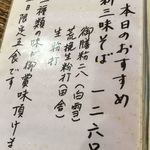 本日のおすすめ
新三味そば 一二六〇
御膳粉二八(白雪)
荒挽生粉打
生粉打(田舎)
三種類の味が御賞味頂けます
日限定五食です